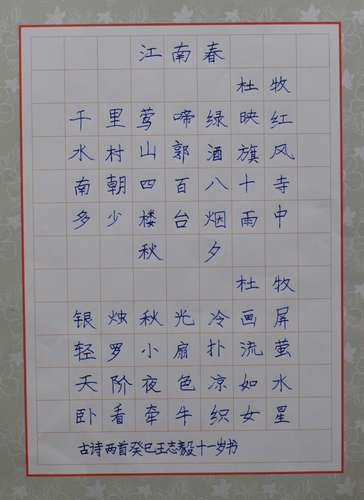 江南春
杜牧
千里莺啼绿映红
水村山郭酒旗风
南朝四百八十寺
多少楼台烟雨中
秋夕
杜牧
银烛秋光冷画屏
轻罗小扇扑流萤
天阶夜色凉如水
卧看牵牛织女星
古诗两首癸巳王志毅十一岁书